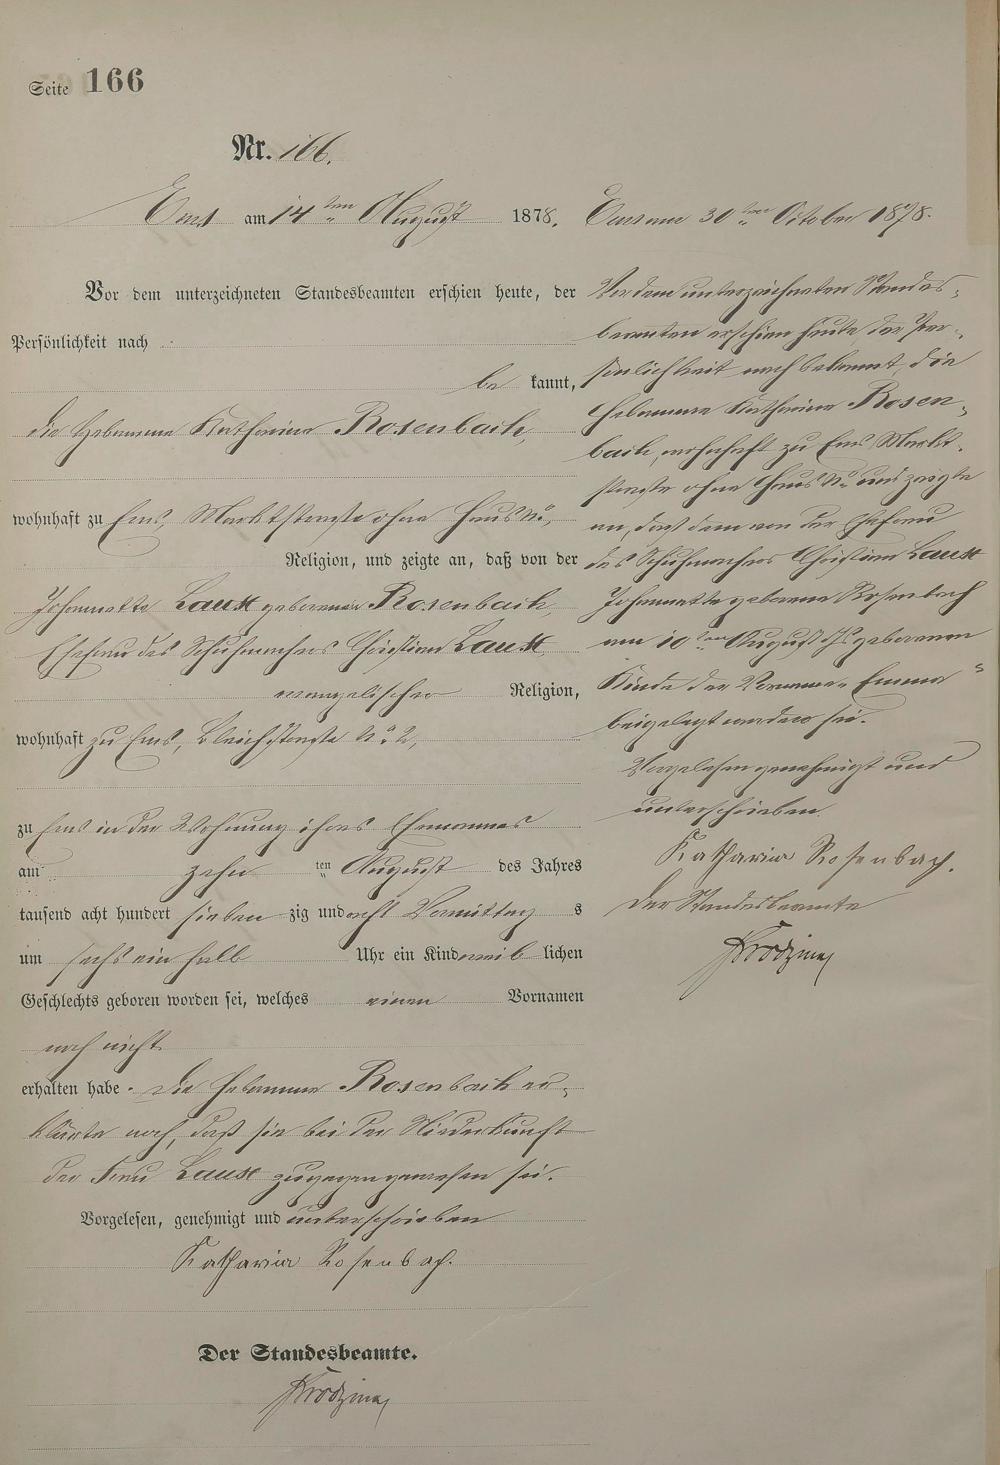 Seite 166
Nr. 166.
Ems am 14ten August 1878.
Vor dem unterzeichneten Standesbeamten erschien heute, der
Persönlichkeit nach
be kannt,
die Hebamme Katharina Rosenbach,
wohnhaft zu Ems, Marktstraße ohne Haus No,
Religion, und zeigte an, daß von der
Johannette Laux geborenen Rosenbach,
Ehefrau des Schuhmachers Christian Laux
evangelischer Religion,
wohnhaft zu Ems, Bleichstraße No 2,
zu Ems in der Wohnung ihres Ehemannes
am zehn ten August des Jahres
tausend acht hundert sieben zig und acht Vormittag s
um sechs ein halb Uhr ein Kind weib lichen
Geschlechts geboren worden sei, welches einen Vornamen
noch nicht
erhalten habe. Die Hebamme Rosenbach er-
klärte noch, daß sie bei der Niederkunft
der Frau Laux zugegen gewesen sei.
Vorgelesen, genehmigt und unterschrieben
Katharina Rosenbach.
Der Standesbeamte.
Ems am 30ten October 1878.
Vor dem unterzeichneten Standes-
beamten erschien heute, der Per-
sönlichkeit nach bekannt, die
Hebamme Katharina Rosen-
bach, wohnhaft zu Ems Markt-
straße ohne Haus No und zeigte
an, daß dem von der Ehefrau
des Schuhmachers Christian Laux
Johannette geborene Rosenbach
am 10ten August d. Js. geborenen
Kinde der Vorname "Emma"
beigelegt worden sei.
Vorgelesen genehmigt und
unterschrieben.
Katharina Rosenbach.
Der Standesbeamte